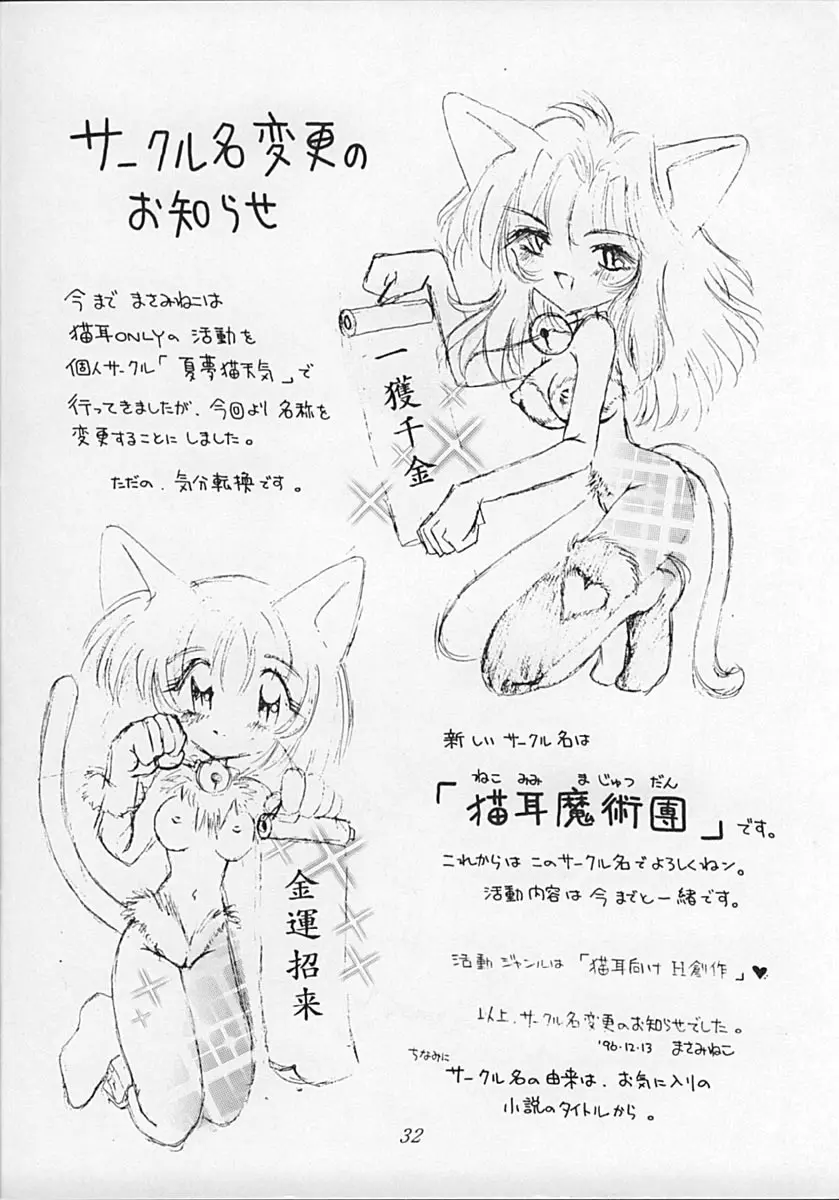 サークル名変更の
お知らせ
今まで まさみねこは
猫耳ONLYの 活動を
個人サークル「夏夢猫天気」で
行ってきましたが、今回より 名称を
変更することにしました。
ただの、気分転換です。
一獲千金
金運招来
新しい サークル名は
ねこ みみ ま じゅつ だん
「猫耳魔術團」です。
これからは このサークル名で よろしくねン。
活動内容は 今までと一緒です。
活動ジャンルは 「猫耳向け H創作」♥
以上、サークル名変更のお知らせでした。
'96.12.13 まさみねこ
ちなみに
サークル名の由来は、お気に入りの
小説のタイトルから。
32